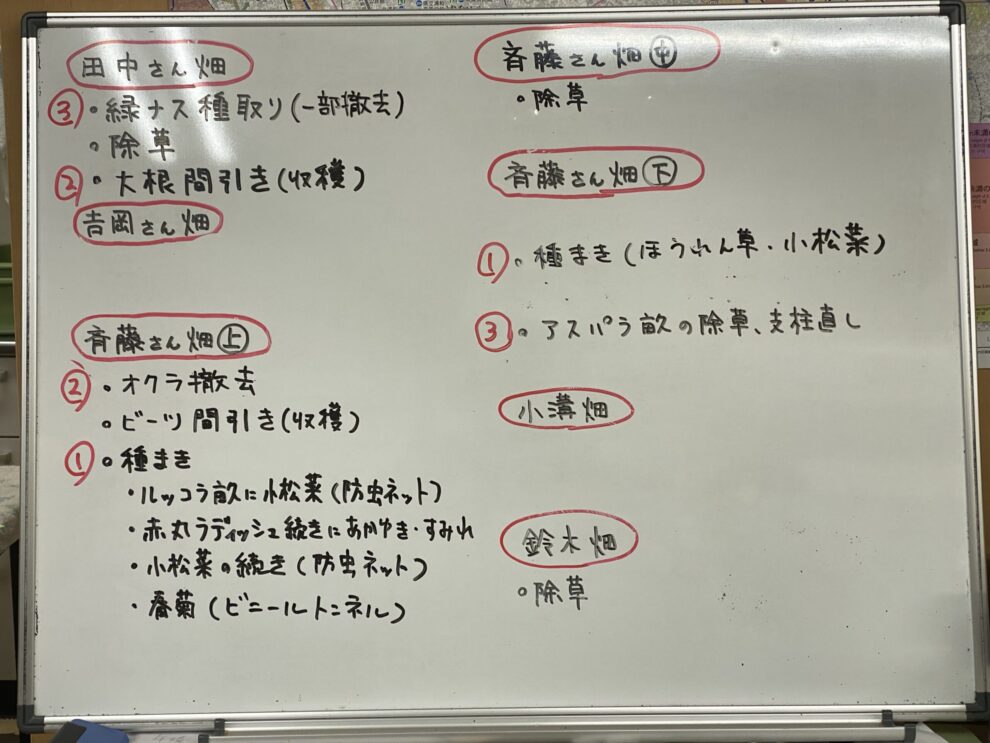 田中さん畑
③・緑ナス種取り(一部撤去)
・除草
②・大根間引き(収穫)
吉岡さん畑
斉藤さん畑㊤
②・オクラ撤去
・ビーツ間引き(収穫)
①・種まき
・ルッコラ畝に小松菜(防虫ネット)
・赤丸ラディッシュ続きにあかゆき・すみれ
・小松菜の続き(防虫ネット)
・春菊(ビニールトンネル)
斉藤さん畑㊥
・除草
斉藤さん畑㊦
①・種まき(ほうれん草・小松菜)
③・アスパラ畝の除草、支柱直し
小溝畑
鈴木畑
・除草